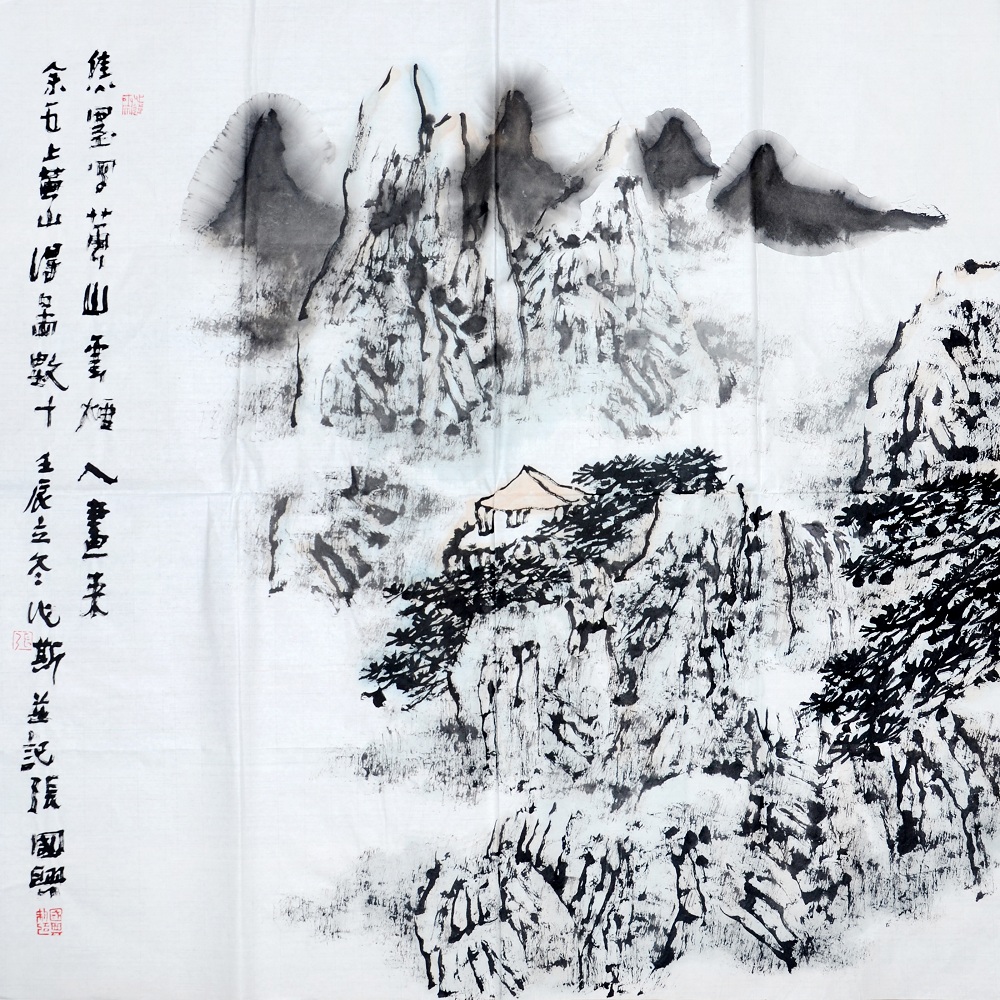 焦墨寫黄山雲煙入畫来
余五上黄山得啚數十 壬辰立冬 斯並記 張國興
張